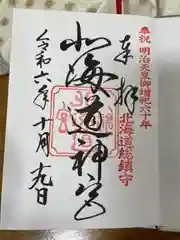 奉祝 明治天皇御増祀六十年
北海道総鎮守
奉拝
北海道神宮
令和六年十月十九日